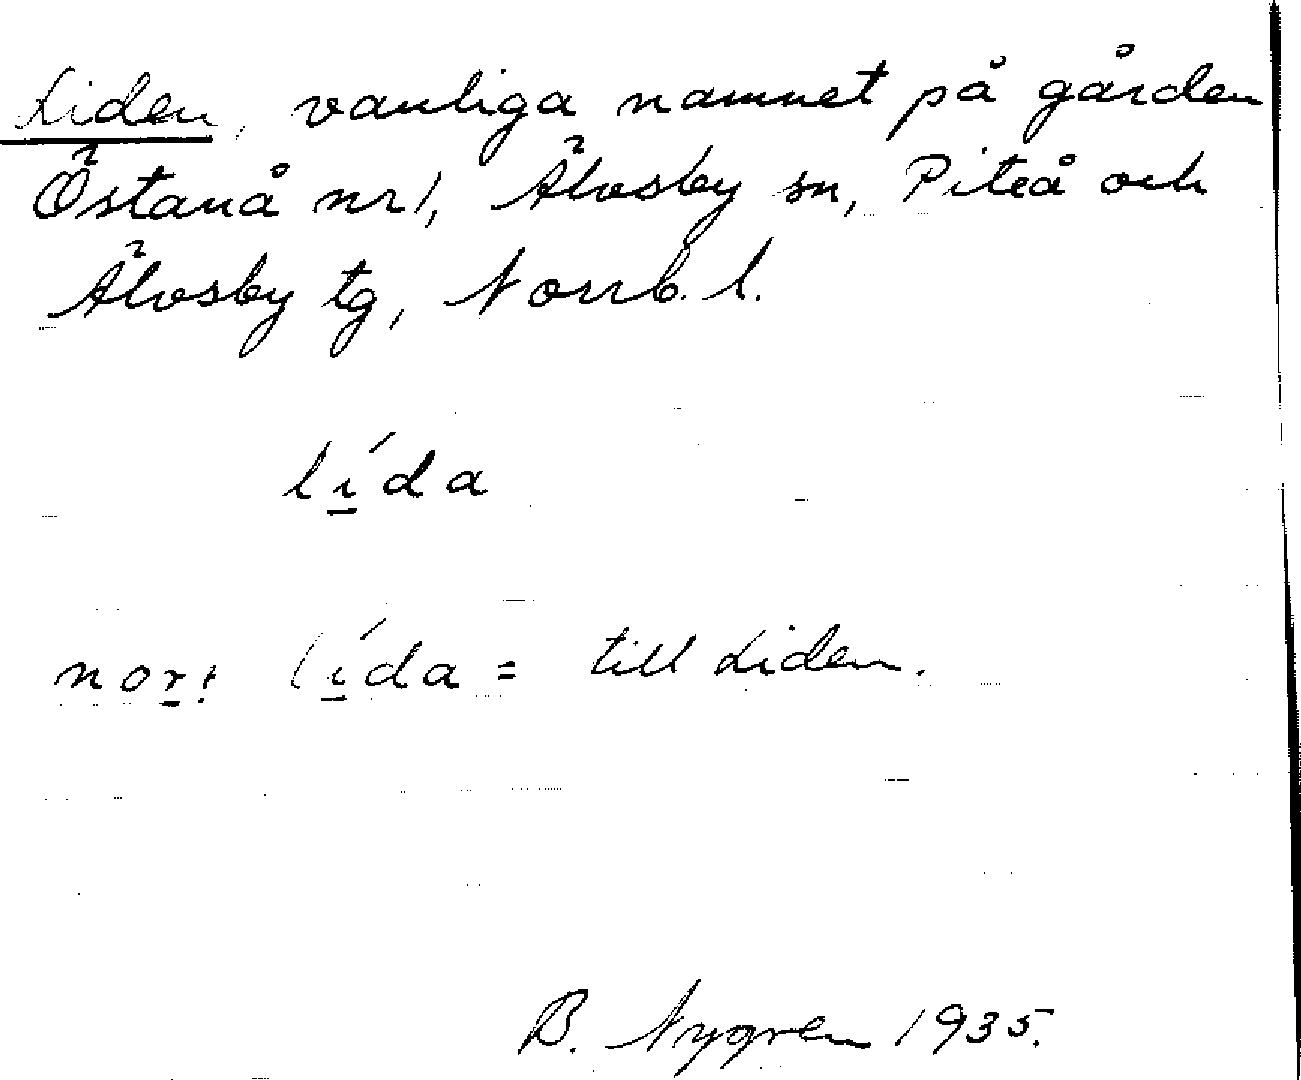 Liden, vanliga namnet på gården
Östanå nr 1, Älvsby sn, Piteå och
Älvsby tg, Norrb. l.
lí̲da
nor̲: lí̲da = till Liden.
B. Nygren 1935.